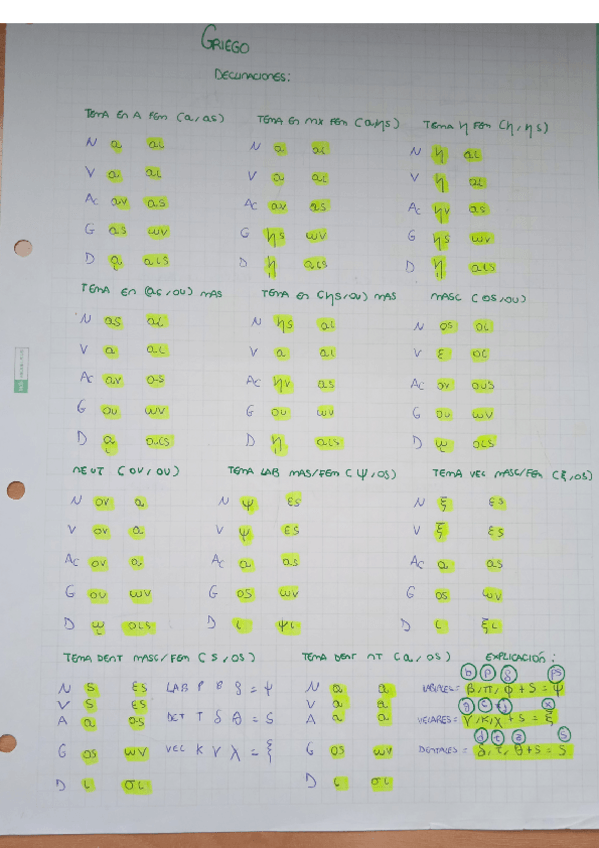 GRIEGO
DECLINACIONES:
TEMA EN A FEM (α, ας) TEMA EN MX FEM (α, ης) TEMA η FEM (η, ης)
N α αι N α αι N η αι
V α αι V α αι V η αι
Ac αν ας Ac αν ας Ac ην ας
G ας ων G ης ων G ης ων
D ᾳ αις D ῃ αις D ῃ αις
TEMA EN (ας, ου) MAS TEMA EN (ης, ου) MAS MASC (ος, ου)
N ας αι N ης αι N ος οι
V α αι V α αι V ε οι
Ac αν ας Ac ην ας Ac ον ους
G ου ων G ου ων G ου ων
D ᾳ αις D ῃ αις D ῳ οις
NEUT (ον, ου) TEMA LAB MAS/FEM (ψ, ος) TEMA VEL MASC/FEM (ξ, ος)
N ον α N ψ ες N ξ ες
V ον α V ψ ες V ξ ες
Ac ον α Ac α ας Ac α ας
G ου ων G ος ων G ος ων
D ῳ οις D ι ψι D ι ξι
TEMA DENT MASC/FEM (ς, ος) TEMA DENT NT (α, ος) EXPLICACIÓN:
b p f ps
N ς ες LAB P B φ = ψ N α α LABIALES = β, π, φ + s = ψ
V ς ες V α α
A α ας DET T δ θ = s A α α VELARES = γ, κ, χ + s = ξ
G ος ων VEL K γ χ = ξ G ος ων DENTALES = δ, τ, θ + s = s
D ι σι D ι α